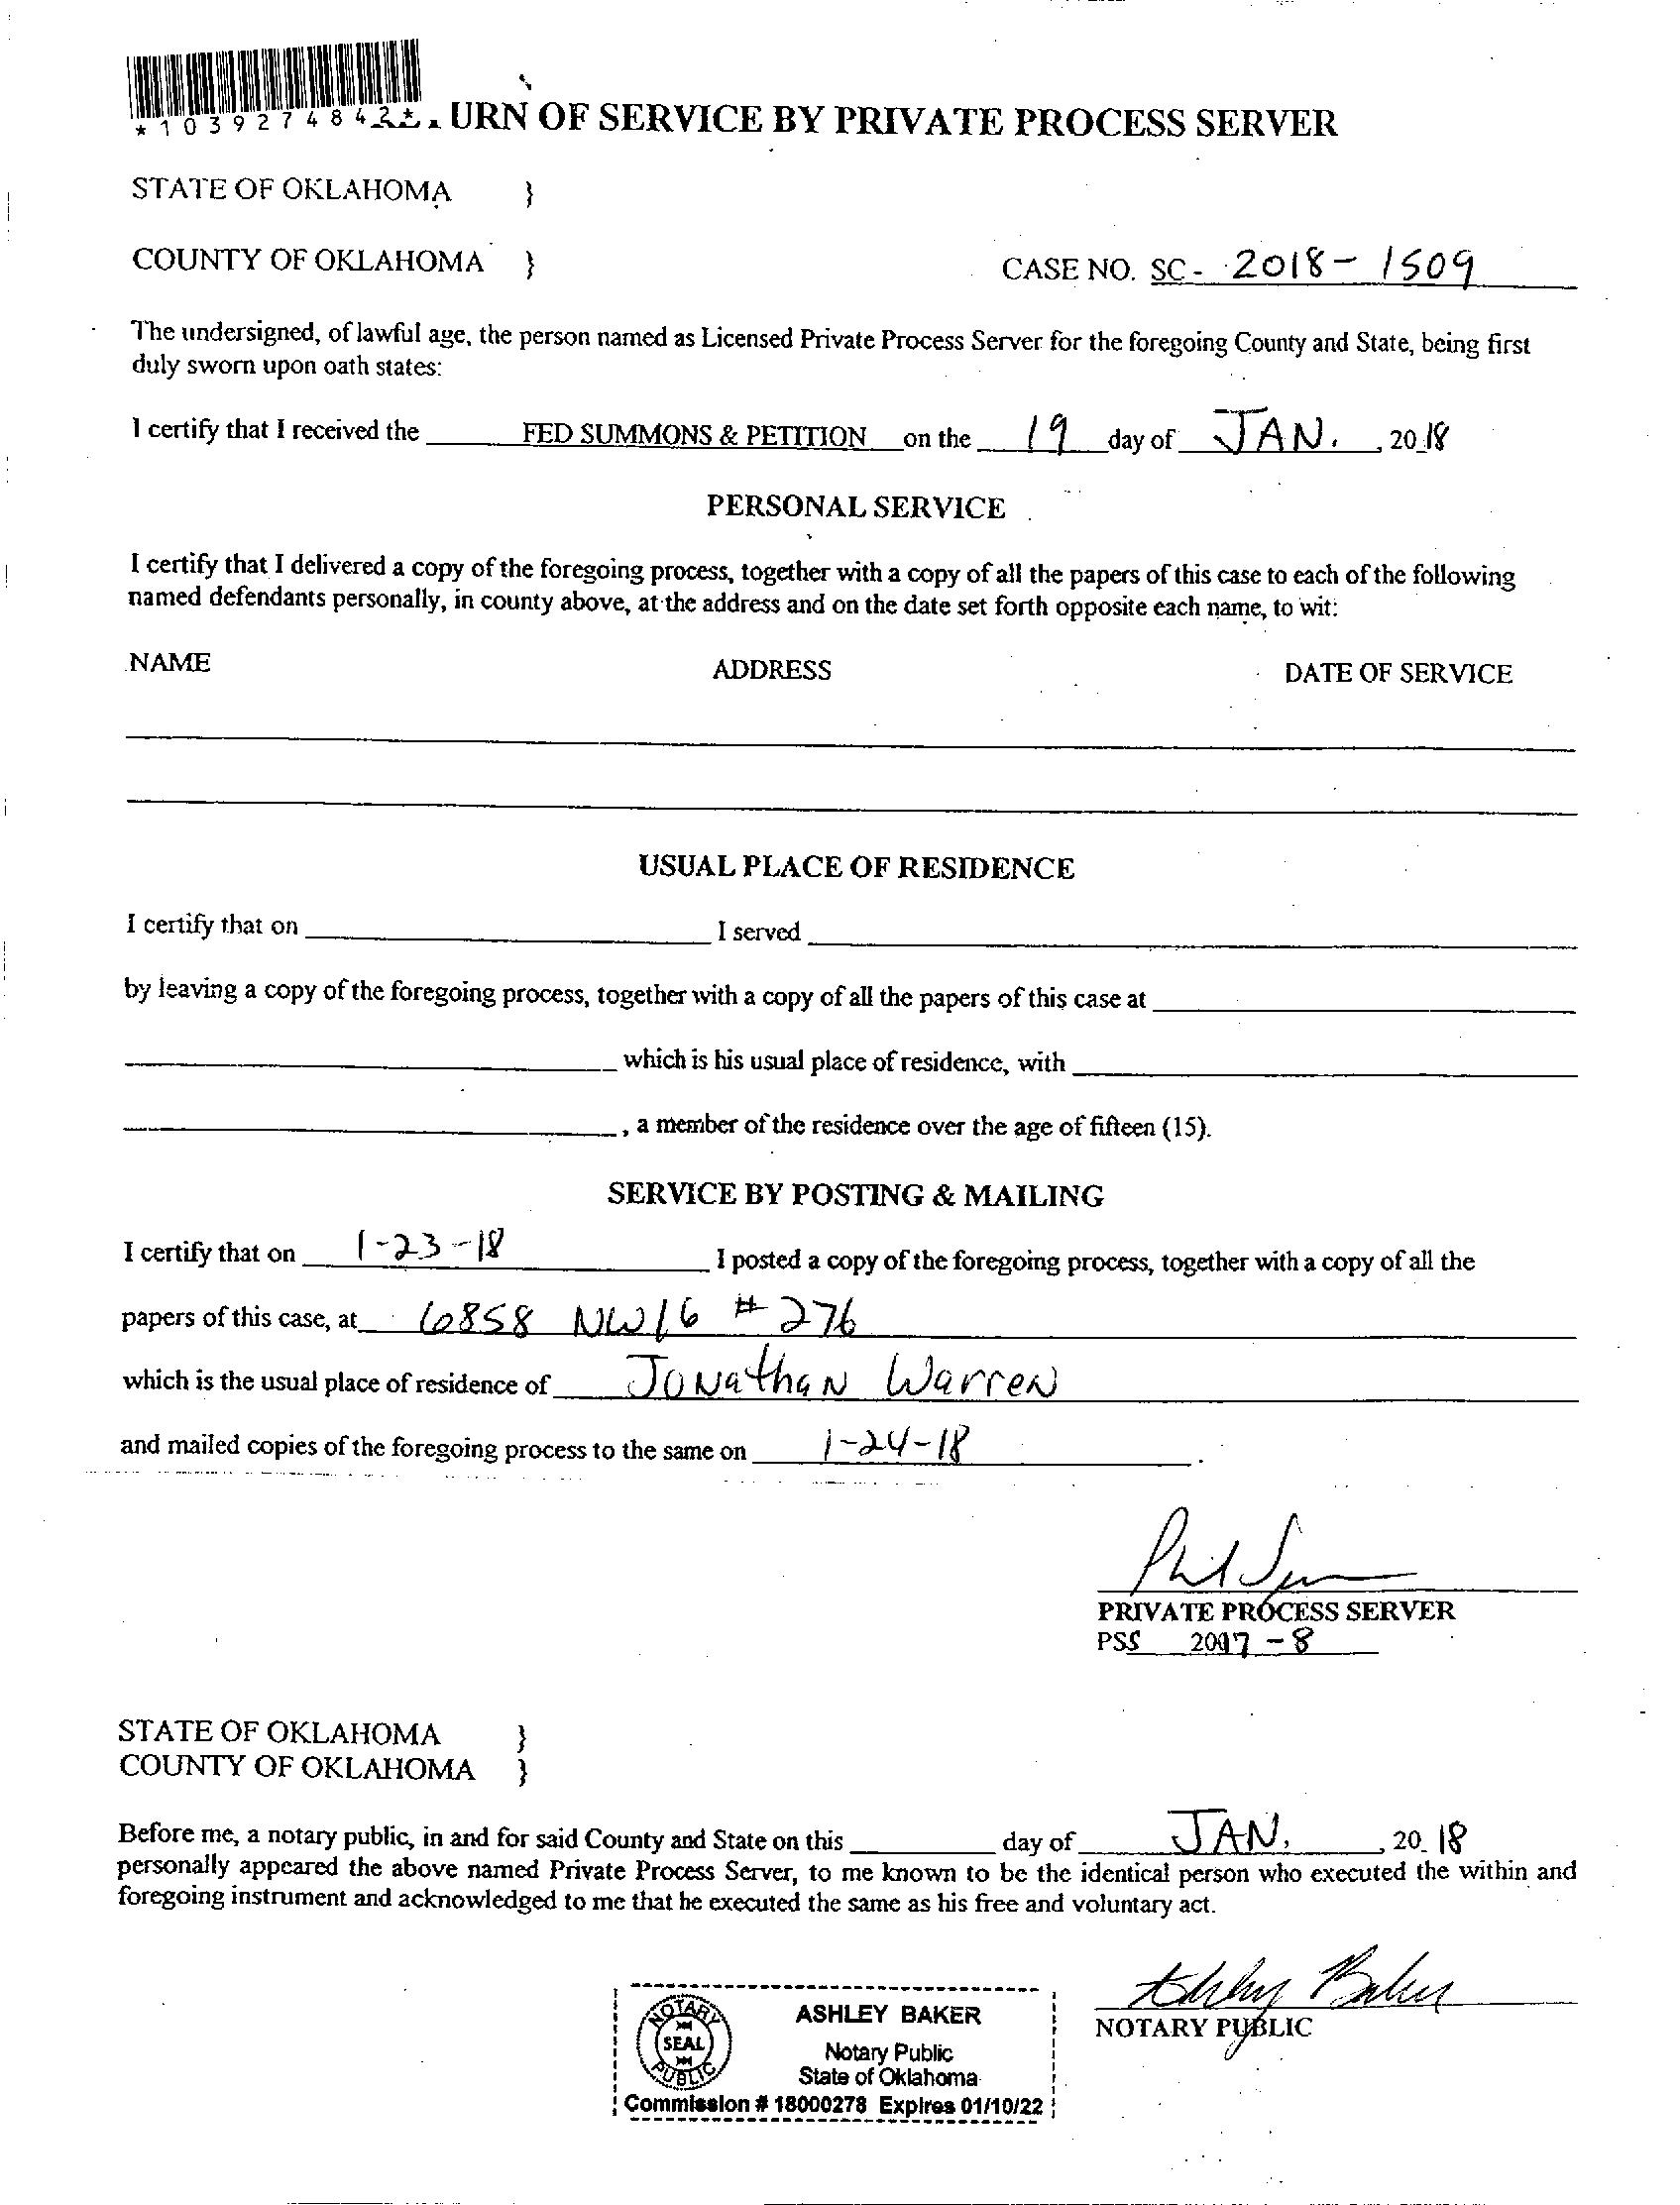 *1039274842*
URN OF SERVICE BY PRIVATE PROCESS SERVER
STATE OF OKLAHOMA }
COUNTY OF OKLAHOMA } CASE NO. SC- 2018-1509
The undersigned, of lawful age, the person named as Licensed Private Process Server for the foregoing County and State, being first
duly sworn upon oath states:
I certify that I received the FED SUMMONS & PETITION on the 19 day of JAN. , 2018
PERSONAL SERVICE
I certify that I delivered a copy of the foregoing process, together with a copy of all the papers of this case to each of the following
named defendants personally, in county above, at the address and on the date set forth opposite each name, to wit:
NAME ADDRESS DATE OF SERVICE
USUAL PLACE OF RESIDENCE
I certify that on I served
by leaving a copy of the foregoing process, together with a copy of all the papers of this case at
which is his usual place of residence, with
, a member of the residence over the age of fifteen (15).
SERVICE BY POSTING & MAILING
I certify that on 1-23-18 I posted a copy of the foregoing process, together with a copy of all the
papers of this case, at 6858 NW 16 # 276
which is the usual place of residence of Jonathan Warren
and mailed copies of the foregoing process to the same on 1-24-18 .
PRIVATE PROCESS SERVER
PSS 2017-8
STATE OF OKLAHOMA }
COUNTY OF OKLAHOMA }
Before me, a notary public, in and for said County and State on this day of JAN. , 20 18
personally appeared the above named Private Process Server, to me known to be the identical person who executed the within and
foregoing instrument and acknowledged to me that he executed the same as his free and voluntary act.
Ashley Baker
NOTARY PUBLIC
NOTARY
SEAL
PUBLIC
ASHLEY BAKER
Notary Public
State of Oklahoma
Commission # 18000278 Expires 01/10/22